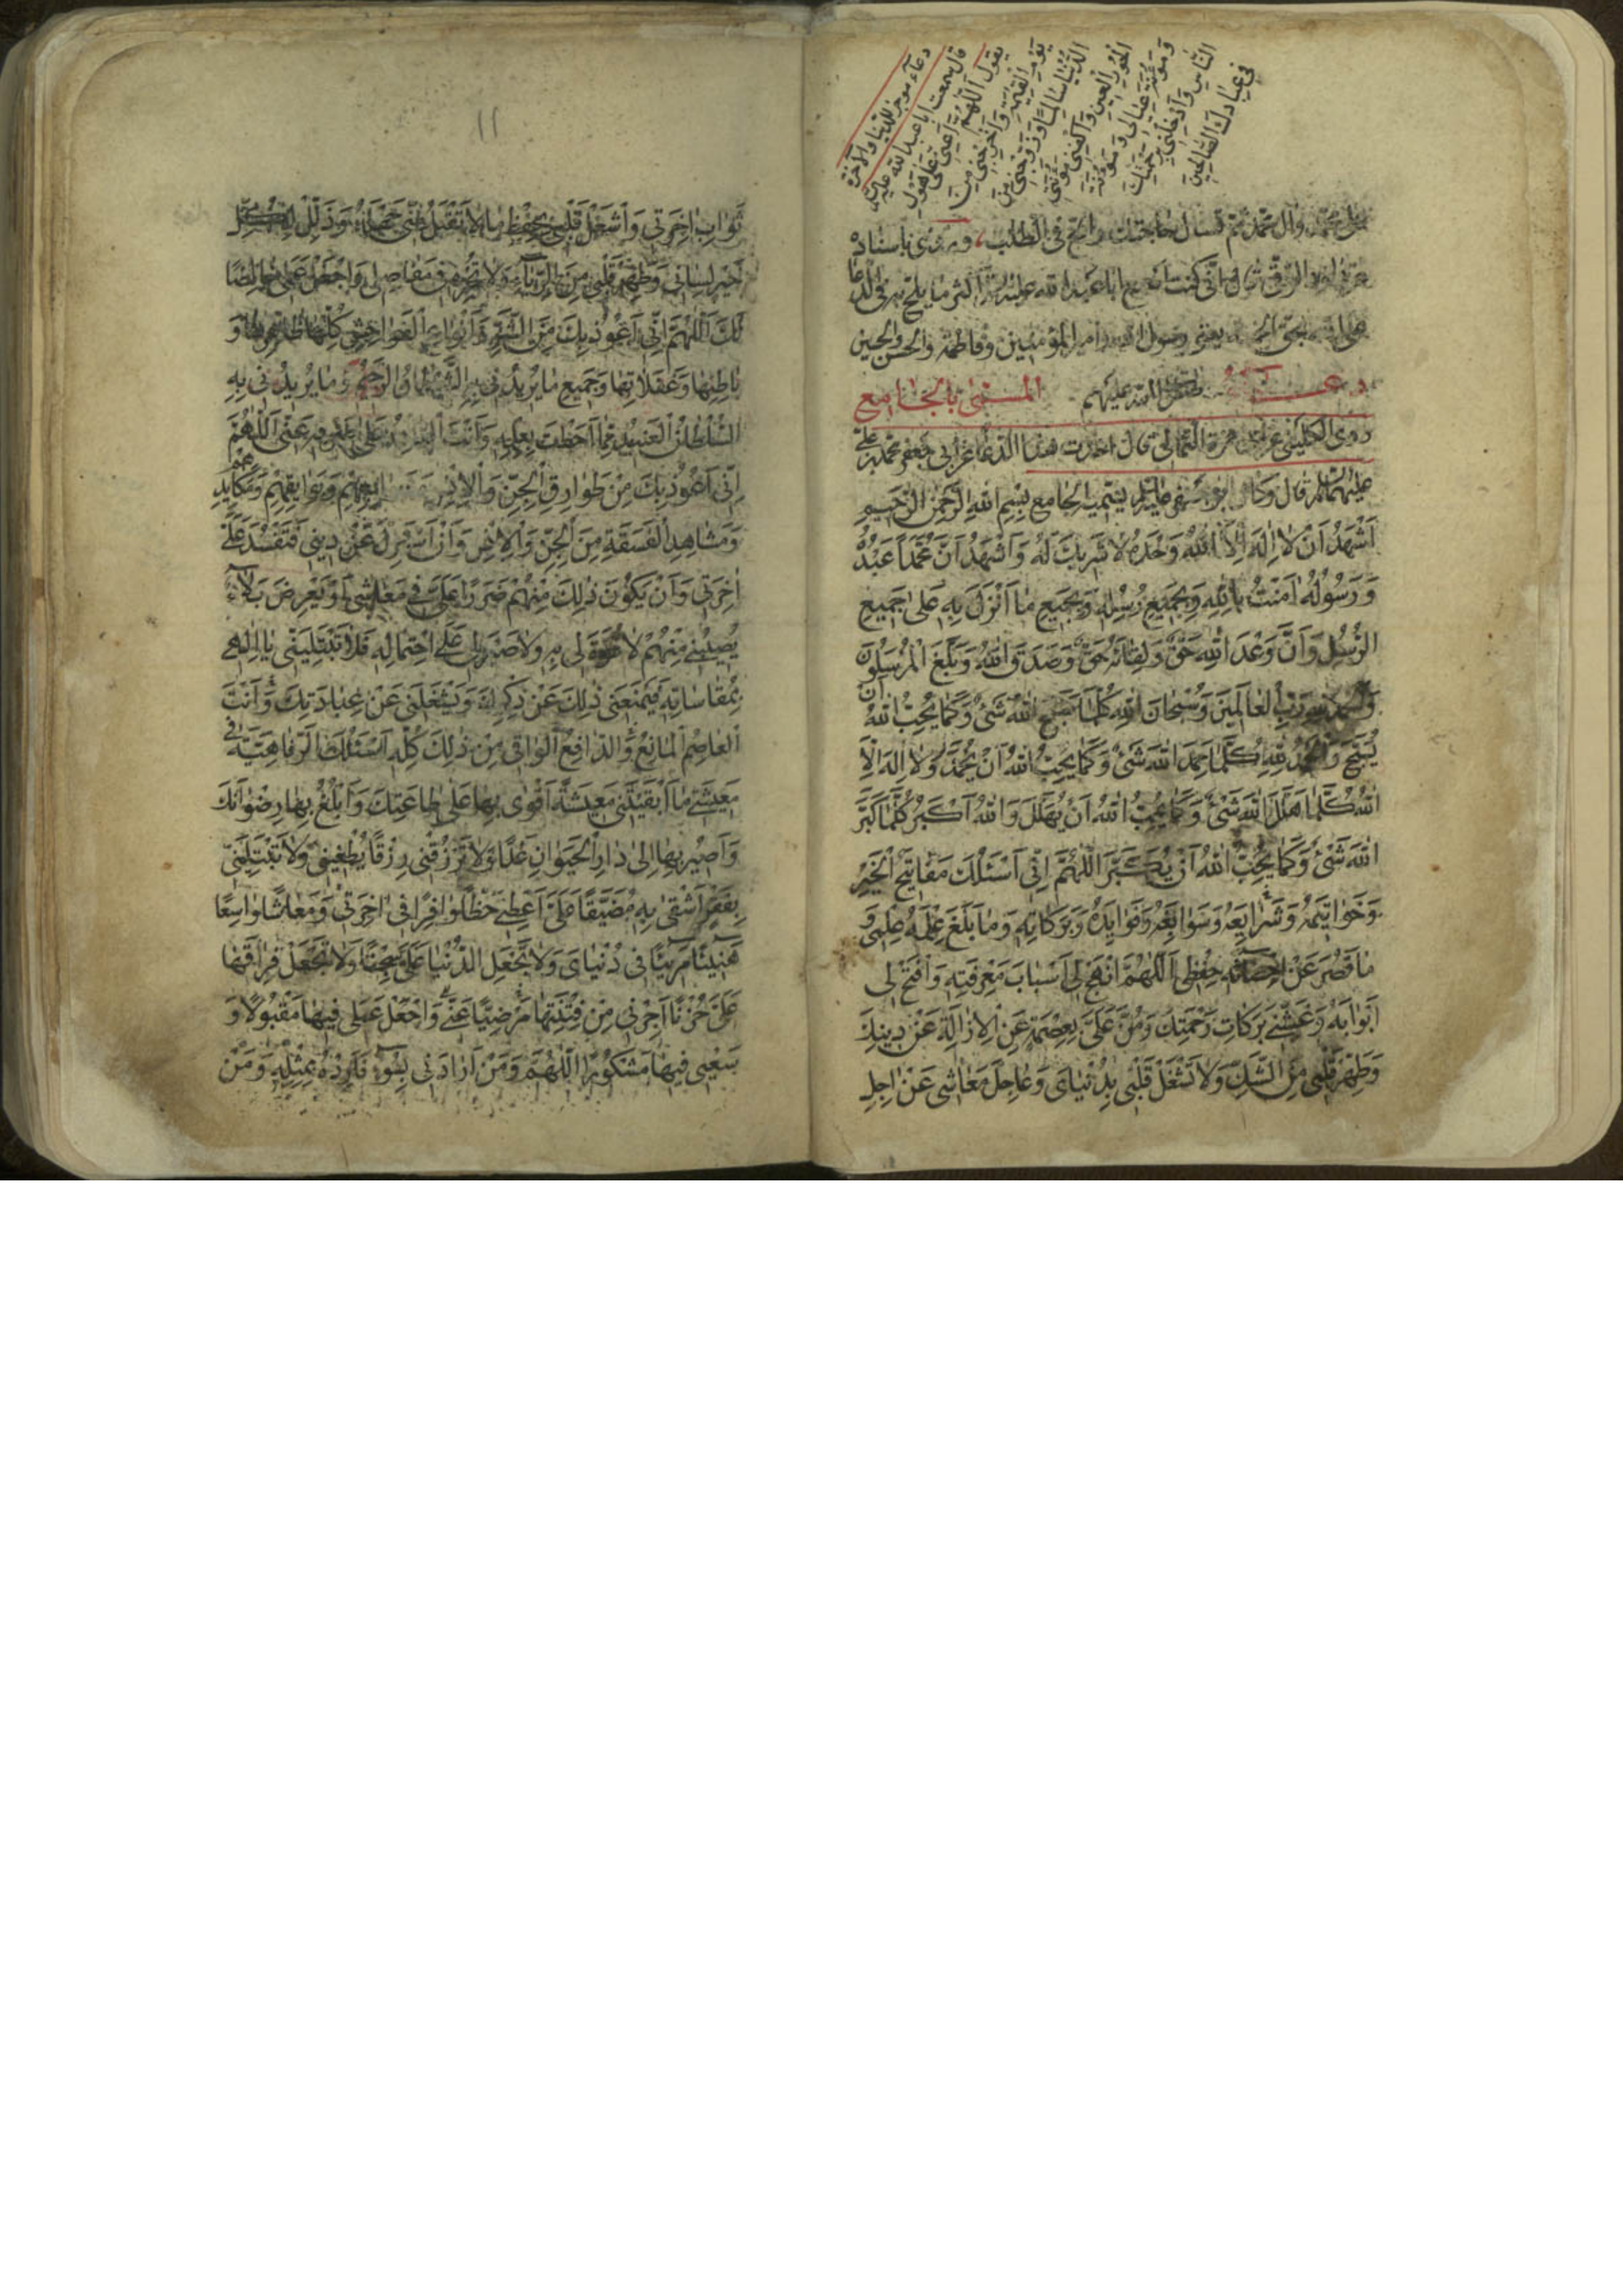 دعاء موجز للدنيا والآخرة
قال سمعت ابا عبد الله عليه
يقول اَللّٰهُمَّ اَعِنّى عَلٰى هَوْلِ
يَوْمِ الْقِيٰمَةِ وَاَخْرِجْنى مِنَ
الدُّنْيٰا سٰالِمًا وَزَوِّجْنى مِنَ
الْحُورِ الْعينِ وَاكْفِنى مَؤُنَتى
وَمَؤُنَةَ عِيٰالى وَمَؤُنَةَ
النّٰاسِ وَاَدْخِلْنى بِرَحْمَتِكَ
فى عِبٰادِكَ الصّٰالِحينَ
على محمد وآل محمد ثم تسأل حاجتك والح فى الطلب، وروى باسناده
عن الرقى قال انى كنت اسمع ابا عبد الله عليه اكثر ما يلح به فى الدعا
على الله بحق الخمسة يعنى رسول الله وامير المؤمنين وفاطمة والحسن والحسين
دعـــاء صلوات الله عليهم المسمّى بالجامع
روى الكلينى عن ابى حمزة الثمالى قال اخذت هذا الدعا عن ابى جعفر محمد بن على
عليهما السلم قال وكان ابو جعفر عليه السلم يسمّيه الجامع بِسْمِ اللهِ الرَّحْمٰنِ الرَّحيمِ
اَشْهَدُ اَنْ لٰا اِلٰهَ اِلَّا اللهُ وَحْدَهُ لٰا شَريكَ لَهُ وَاَشْهَدُ اَنَّ مُحَمَّداً عَبْدُهُ
وَرَسُولُهُ اٰمَنْتُ بِاللهِ وَبِجَميعِ رُسُلِهِ وَبِجَميعِ مٰا اَنْزَلَ بِهِ عَلٰى جَميعِ
الرُّسُلِ وَاَنَّ وَعْدَ اللهِ حَقٌّ وَلِقٰائَهُ حَقٌّ وَصَدَقَ اللهُ وَبَلَّغَ الْمُرْسَلُونَ
وَالْحَمْدُ لِلّهِ رَبِّ الْعٰالَمينَ وَسُبْحٰانَ اللهِ كُلَّمٰا سَبَّحَ اللهَ شَىْءٌ وَكَمٰا يُحِبُّ اللهُ اَنْ
يُسَبَّحَ وَالْحَمْدُ لِلّهِ كُلَّمٰا حَمِدَ اللهَ شَىْءٌ وَكَمٰا يُحِبُّ اللهُ اَنْ يُحْمَدَ وَلٰا اِلٰهَ اِلَّا
اللهُ كُلَّمٰا هَلَّلَ اللهَ شَىْءٌ وَكَمٰا يُحِبُّ اللهُ اَنْ يُهَلَّلَ وَاللهُ اَكْبَرُ كُلَّمٰا كَبَّرَ
اللهَ شَىْءٌ وَكَمٰا يُحِبُّ اللهُ اَنْ يُكَبَّرَ اَللّٰهُمَّ اِنّى اَسْئَلُكَ مَفٰاتيحَ الْخَيْرِ
وَخَوٰاتيمَهُ وَشَرٰايِعَهُ وَسَوٰابِغَهُ وَفَوٰايِدَهُ وَبَرَكٰاتِهِ وَمٰا بَلَغَ عِلْمَهُ عِلْمى وَ
مٰا قَصُرَ عَنْ اِحْصٰائِهِ حِفْظى اَللّٰهُمَّ انْهَجْ لى اَسْبٰابَ مَعْرِفَتِهِ وَافْتَحْ لى
اَبْوٰابَهُ وَغَشِّنى بَرَكٰاتِ رَحْمَتِكَ وَمُنَّ عَلَىَّ بِعِصْمَةٍ عَنِ الْاِزٰالَةِ عَنْ دينِكَ
وَطَهِّرْ قَلْبى مِنَ الشَّكِّ وَلٰا تَشْغَلْ قَلْبى بِدُنْيٰاىَ وَعٰاجِلِ مَعٰاشى عَنْ اٰجِلِ
١١
ثَوٰابِ اٰخِرَتى وَاشْغَلْ قَلْبى بِحِفْظِ مٰا لٰا تَقْبَلُ مِنّى جَهْلَهُ وَذَلِّلْ لِكُلِّ
خَيْرٍ لِسٰانى وَطَهِّرْ قَلْبى مِنَ الرِّيٰاءِ وَلٰا تُجْرِهِ فى مَفٰاصِلى وَاجْعَلْ عَمَلى خٰالِصًا
لَكَ اَللّٰهُمَّ اِنّى اَعُوذُ بِكَ مِنَ الشَّرِّ وَاَنْوٰاعِ الْفَوٰاحِشِ كُلِّهٰا ظٰاهِرِهٰا وَ
بٰاطِنِهٰا وَغَفَلٰاتِهٰا وَجَميعِ مٰا يُريدُنى بِهِ الشَّيْطٰانُ الرَّجيمُ وَمٰا يُريدُنى بِهِ
السُّلْطٰانُ الْعَنيدُ مِمّٰا اَحَطْتَ بِعِلْمِهِ وَاَنْتَ الْقٰادِرُ عَلٰى صَرْفِهِ عَنّى اَللّٰهُمَّ
اِنّى اَعُوذُ بِكَ مِنْ طَوٰارِقِ الْجِنِّ وَالْاِنْسِ وَبَوٰائِقِهِمْ وَمَكٰايِدِهِمْ
وَمَشٰاهِدِ الْفَسَقَةِ مِنَ الْجِنِّ وَالْاِنْسِ وَاَنْ اُسْتَزَلَّ عَنْ دينى فَتَفْسُدَ عَلَىَّ
اٰخِرَتى وَاَنْ يَكُونَ ذٰلِكَ مِنْهُمْ ضَرَرًا عَلَىَّ فى مَعٰاشى اَوْ يَعْرِضَ بَلٰاءٌ
يُصيبُنى مِنْهُمْ لٰا قُوَّةَ لى بِهِ وَلٰا صَبْرَ لى عَلَى احْتِمٰالِهِ فَلٰا تَبْتَلِيَنّى يٰا اِلٰهى
بِمُقٰاسٰاتِهِ فَيَمْنَعَنى ذٰلِكَ عَنْ ذِكْرِكَ وَيَشْغَلَنى عَنْ عِبٰادَتِكَ وَاَنْتَ
الْعٰاصِمُ الْمٰانِعُ وَالدّٰافِعُ الْوٰاقى مِنْ ذٰلِكَ كُلِّهِ اَسْئَلُكَ الرَّفٰاهِيَّةَ فى
مَعيشَتى مٰا اَبْقَيْتَنى مَعيشَةً اَقْوٰى بِهٰا عَلٰى طٰاعَتِكَ وَاَبْلُغُ بِهٰا رِضْوٰانَكَ
وَاَصيرُ بِهٰا اِلٰى دٰارِ الْحَيَوٰانِ غَدًا وَلٰا تَرْزُقْنى رِزْقًا يُطْغينى وَلٰا تَبْتَلِيَنّى
بِفَقْرٍ اَشْقٰى بِهِ مُضَيَّقًا عَلَىَّ اَعْطِنى حَظًّا وٰافِرًا فى اٰخِرَتى وَمَعٰاشًا وٰاسِعًا
هَنيئًا مَريئًا فى دُنْيٰاىَ وَلٰا تَجْعَلِ الدُّنْيٰا عَلَىَّ سِجْنًا وَلٰا تَجْعَلْ فِرٰاقَهٰا
عَلَىَّ حُزْنًا اَجِرْنى مِنْ فِتْنَتِهٰا مَرْضِيًّا عَنّى وَاجْعَلْ عَمَلى فيهٰا مَقْبُولًا وَ
سَعْيى فيهٰا مَشْكُورًا اَللّٰهُمَّ وَمَنْ اَرٰادَنى بِسُوءٍ فَاَرِدْهُ بِمِثْلِهِ وَمَنْ